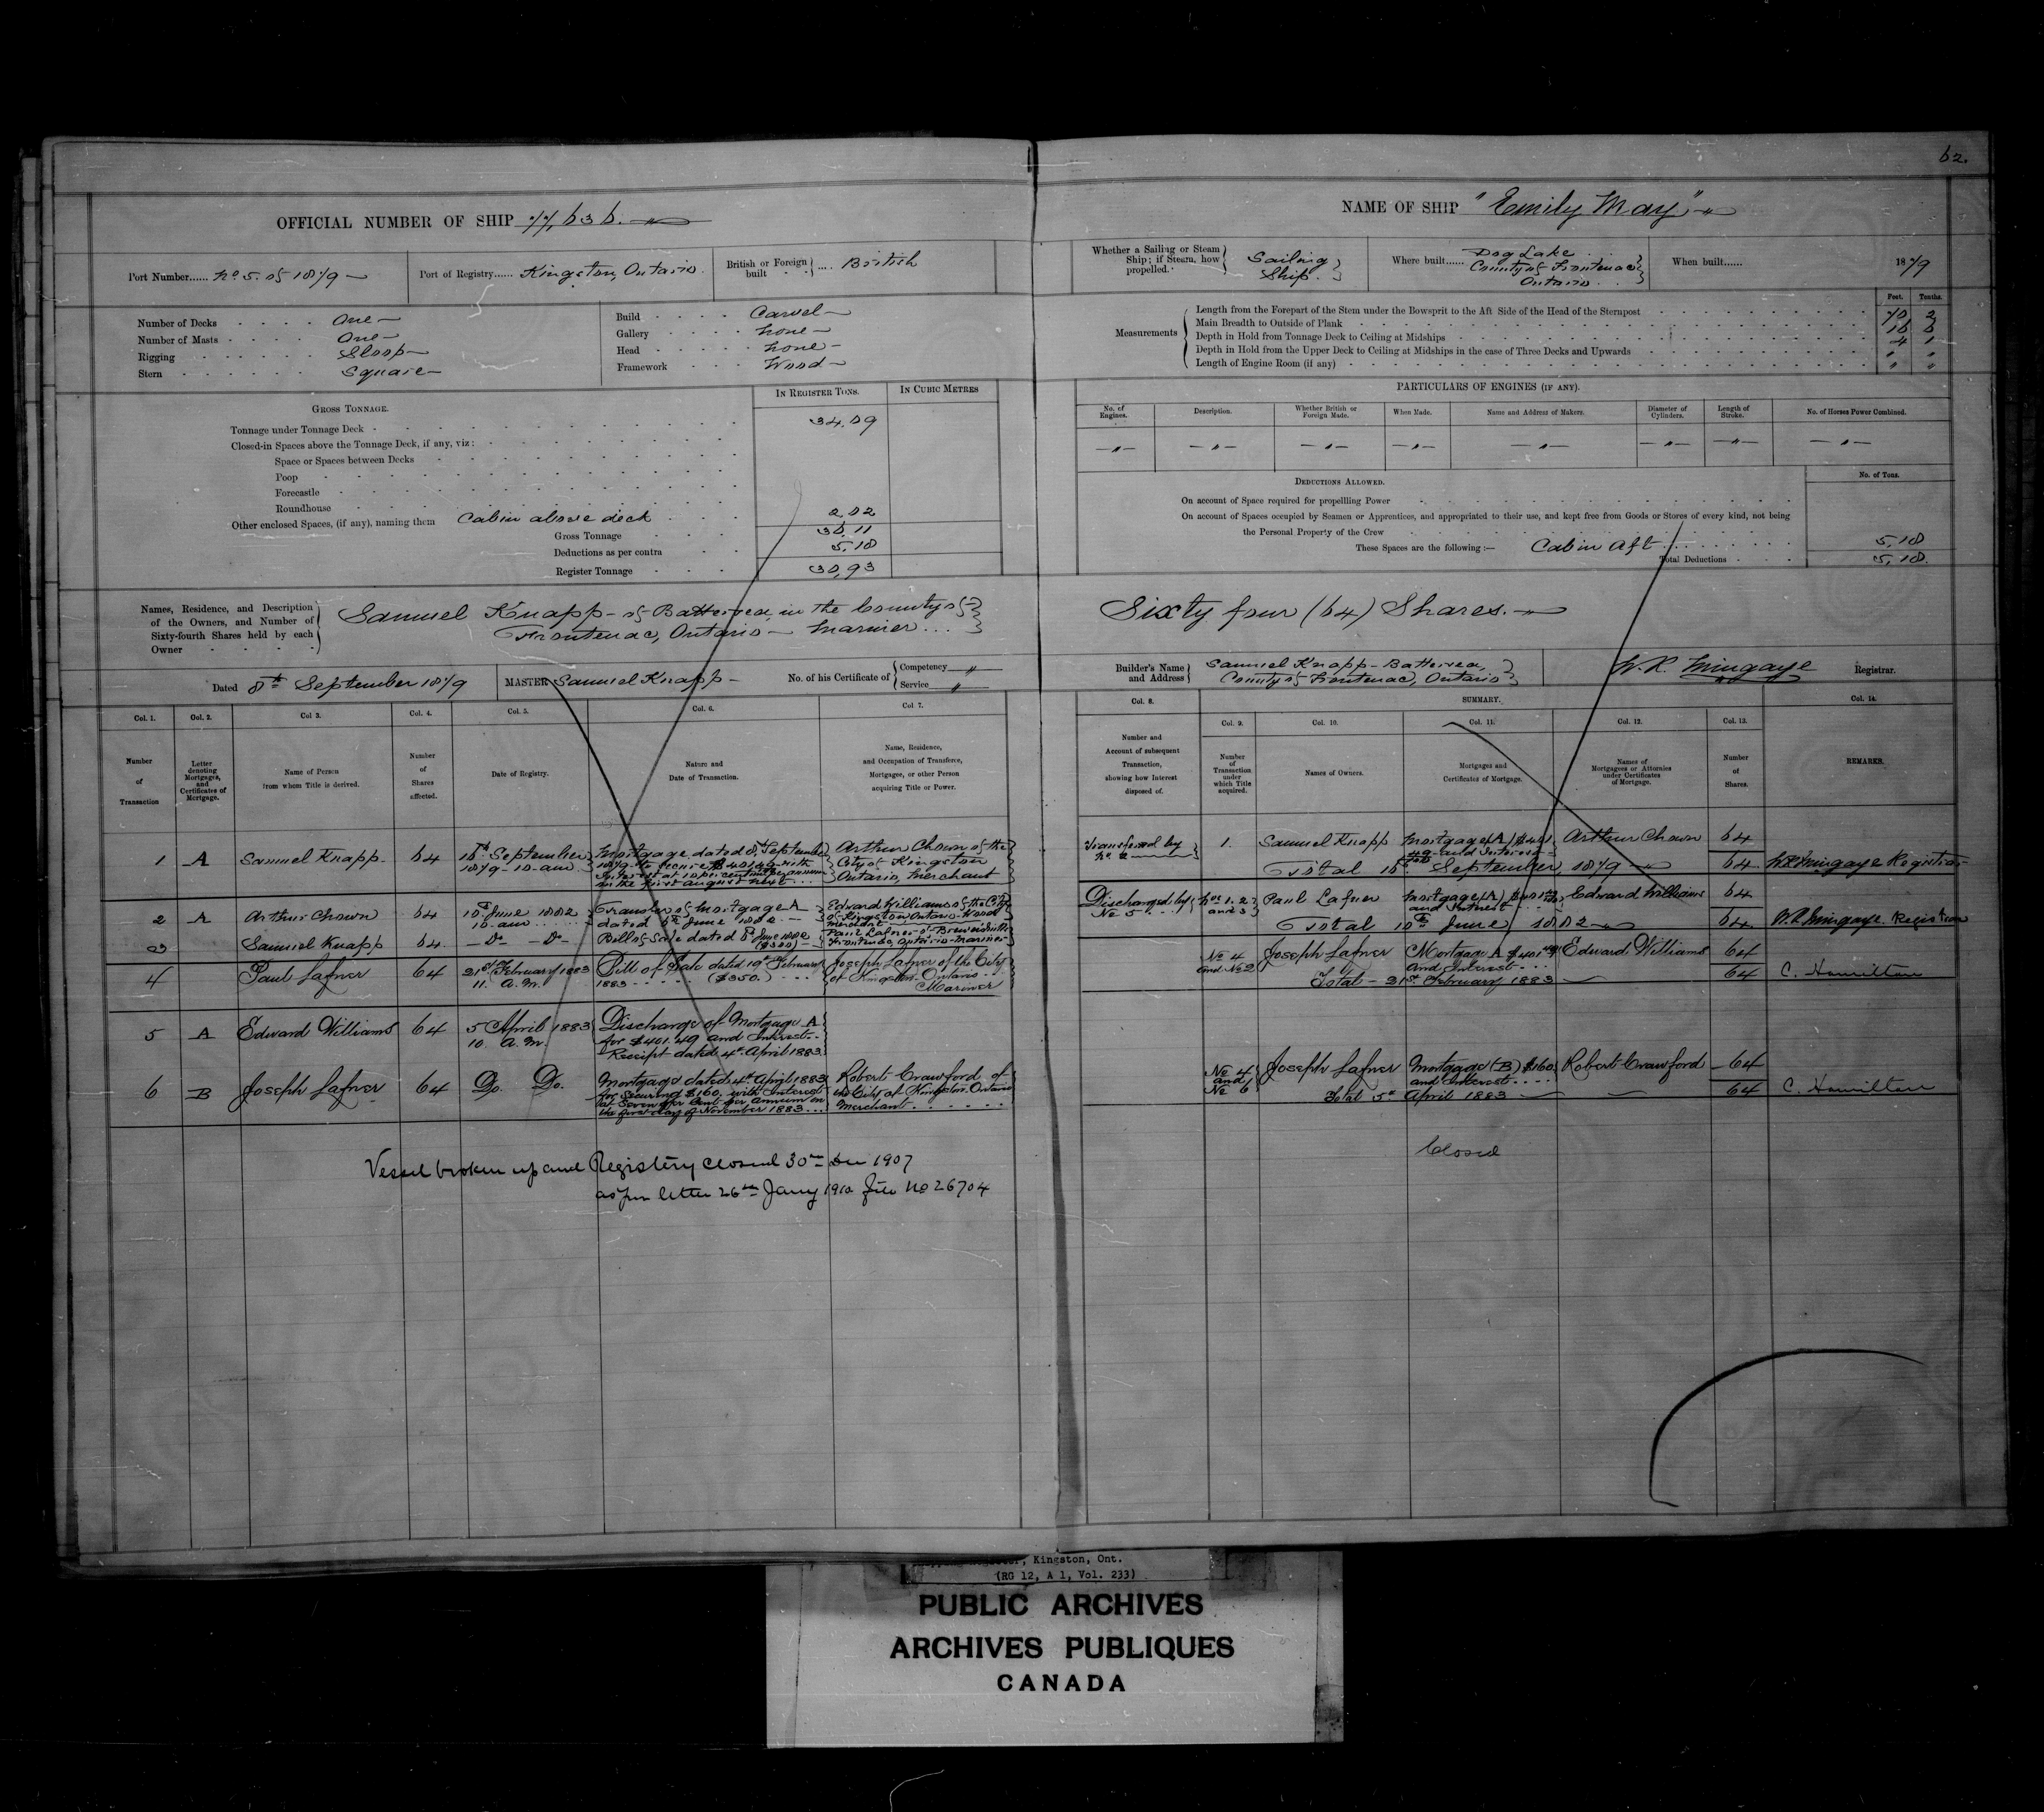 62.
OFFICIAL NUMBER OF SHIP 77,636.
NAME OF SHIP "Emily May"
Port Number...... No 5. of 1879
Port of Registry...... Kingston, Ontario.
British or Foreign built .... British
Whether a Sailing or Steam Ship; if Steam, how propelled.
Sailing Ship.
Where built...... Dog Lake
County of Frontenac
Ontario
When built...... 1879
Number of Decks One
Number of Masts One
Rigging Sloop
Stern Square
Build Carvel
Gallery None
Head None
Framework Wood
Measurements
Feet. Tenths.
Length from the Forepart of the Stem under the Bowsprit to the Aft Side of the Head of the Sternpost 70 2
Main Breadth to Outside of Plank 16 6
Depth in Hold from Tonnage Deck to Ceiling at Midships 4 1
Depth in Hold from the Upper Deck to Ceiling at Midships in the case of Three Decks and Upwards " "
Length of Engine Room (if any) " "
GROSS TONNAGE.
IN REGISTER TONS.
IN CUBIC METRES
Tonnage under Tonnage Deck 34.09
Closed-in Spaces above the Tonnage Deck, if any, viz:
Space or Spaces between Decks
Poop
Forecastle
Roundhouse
Other enclosed Spaces, (if any), naming them Cabin above deck 2.02
Gross Tonnage 36.11
Deductions as per contra 5.18
Register Tonnage 30.93
PARTICULARS OF ENGINES (IF ANY).
No. of Engines.
Description.
Whether British or Foreign Made.
When Made.
Name and Address of Makers.
Diameter of Cylinders.
Length of Stroke.
No. of Horses Power Combined.
DEDUCTIONS ALLOWED.
No. of Tons.
On account of Space required for propelling Power
On account of Spaces occupied by Seamen or Apprentices, and appropriated to their use, and kept free from Goods or Stores of every kind, not being
the Personal Property of the Crew
These Spaces are the following:— Cabin Aft 5.18
Total Deductions 5.18.
Names, Residence, and Description
of the Owners, and Number of
Sixty-fourth Shares held by each
Owner
Samuel Knapp of Battersea, in the County of
Frontenac, Ontario - Mariner
Sixty four (64) Shares.
Dated 8th September 1879
MASTER Samuel Knapp
No. of his Certificate of
Competency "
Service "
Builder's Name and Address
Samuel Knapp - Battersea,
County of Frontenac, Ontario
W. R. Mingaye Registrar.
Col. 1. Col. 2. Col 3. Col. 4. Col. 5. Col. 6. Col 7.
Number of Transaction
Letter denoting Mortgages, and Certificates of Mortgage.
Name of Person from whom Title is derived.
Number of Shares affected.
Date of Registry.
Nature and Date of Transaction.
Name, Residence, and Occupation of Transferee, Mortgagee, or other Person acquiring Title or Power.
Col. 8. SUMMARY. Col. 14.
Col. 9. Col. 10. Col. 11. Col. 12. Col. 13.
Number and Account of subsequent Transaction, showing how Interest disposed of.
Number of Transaction under which Title acquired.
Names of Owners.
Mortgages and Certificates of Mortgage.
Names of Mortgagees or Attornies under Certificates of Mortgage.
Number of Shares.
REMARKS.
1 A Samuel Knapp 64
16th September 1879 - 10 - a.m.
Mortgage dated 8th September
1879 to secure $401.49 with
Interest at 10 per centum per annum
on the first August next
Arthur Chown of the
City of Kingston
Ontario, Merchant
2 A Arthur Chown 64
10th June 1882
10 - a.m.
Transfer of Mortgage A
dated 8th June 1882.
Edward Williams of the City
of Kingston Ontario Wood
3 Samuel Knapp 64 Do Do
Bill of Sale dated 8th June 1882
($300)
Paul Lafner of
Frontenac, Ontario - Mariner
4 Paul Lafner 64
21st February 1883
11. A.M.
Bill of Sale dated 19th February
1883 ($350.)
Joseph Lafner of the City
of Kingston Ontario
Mariner
5 A Edward Williams 64
5 April 1883
10. A.M.
Discharge of Mortgage A
for $401.49 and Interest
Receipt dated 4th April 1883.
6 B Joseph Lafner 64 Do. Do.
Mortgage dated 4th April 1883
for securing $160. with Interest
at Seven per Cent per Annum on
the first day of November 1883
Robert Crawford of
the City of Kingston Ontario
Merchant
Vessel broken up and Registry closed 30th Dec 1907
as per letter 26th Jany 1910 file No 26704
Transferred by No 2
1. Samuel Knapp
Mortgage (A) $401
49 and Interest
Arthur Chown 64
Total 16th September 1879 64
W R Mingaye Registrar
Discharged by No 5
Nos 1. 2 and 3
Paul Lafner
Mortgage (A) $401
and Interest
Edward Williams 64
Total 10th June 1882 64
W. R. Mingaye Registrar
No 4 and No 2
Joseph Lafner
Mortgage A $401.49
and Interest
Edward Williams 64
Total - 21st February 1883 64
C. Hamilton
No 4 and No 6
Joseph Lafner
Mortgage (B) $160
and Interest
Robert Crawford 64
Total 5th April 1883 64
C. Hamilton
Closed
Kingston, Ont.
(RG 12, A 1, Vol. 233)
PUBLIC ARCHIVES
ARCHIVES PUBLIQUES
CANADA